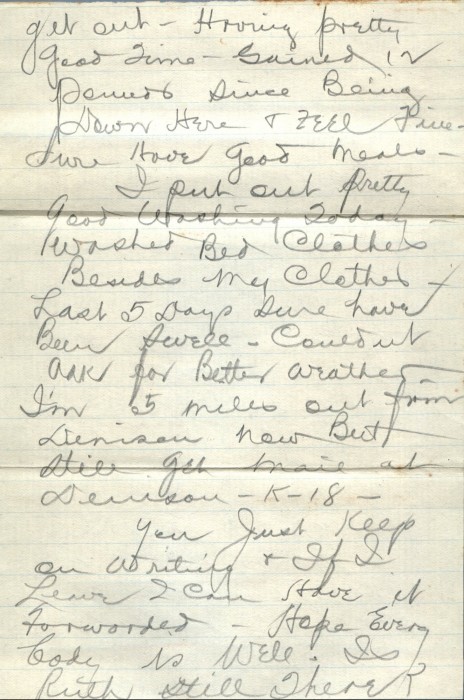 get out - Having pretty
Good Time - Gained 12
Pounds Since Being
Down Here & Feel Fine -
Sure Have Good Meals -
I put out Pretty
Good Washing Today -
Washed Bed Clothes
Besides My Clothes -
Last 5 Days Sure have
Been Swell - Couldnt
ask for Better Weather
I'm 5 miles out from
Denison now But
still get mail at
Denison - K-18 -
You Just Keep
on Writing & If I
Leave I can Have it
Forwarded - Hope Every
body is Well. Is
Ruth Still There?